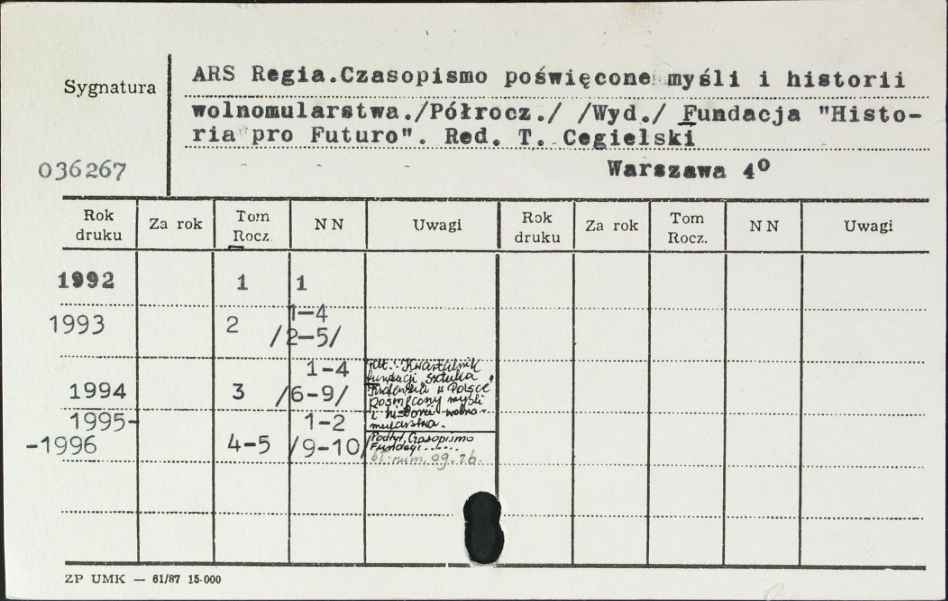 Sygnatura
ARS Regia.Czasopismo poświęcone myśli i historii
wolnomularstwa./Półrocz./ /Wyd./ Fundacja "Histo-
ria pro Futuro". Red. T. Cegielski
036267 Warszawa 4º
Rok druku Za rok Tom Rocz. N N Uwagi Rok druku Za rok Tom Rocz. N N Uwagi
1992 1 1
1993 2 1-4 /2-5/
1994 3 1-4 /6-9/ Kwartalnik
fundacji Sztuka
w Polsce
poświęcony myśli
i historii wolno-
mularstwa.
1995-
-1996 4-5 1-2 /9-10/ Podtyt. Czasopismo
Fundacji......
ZP UMK — 61/87 15-000